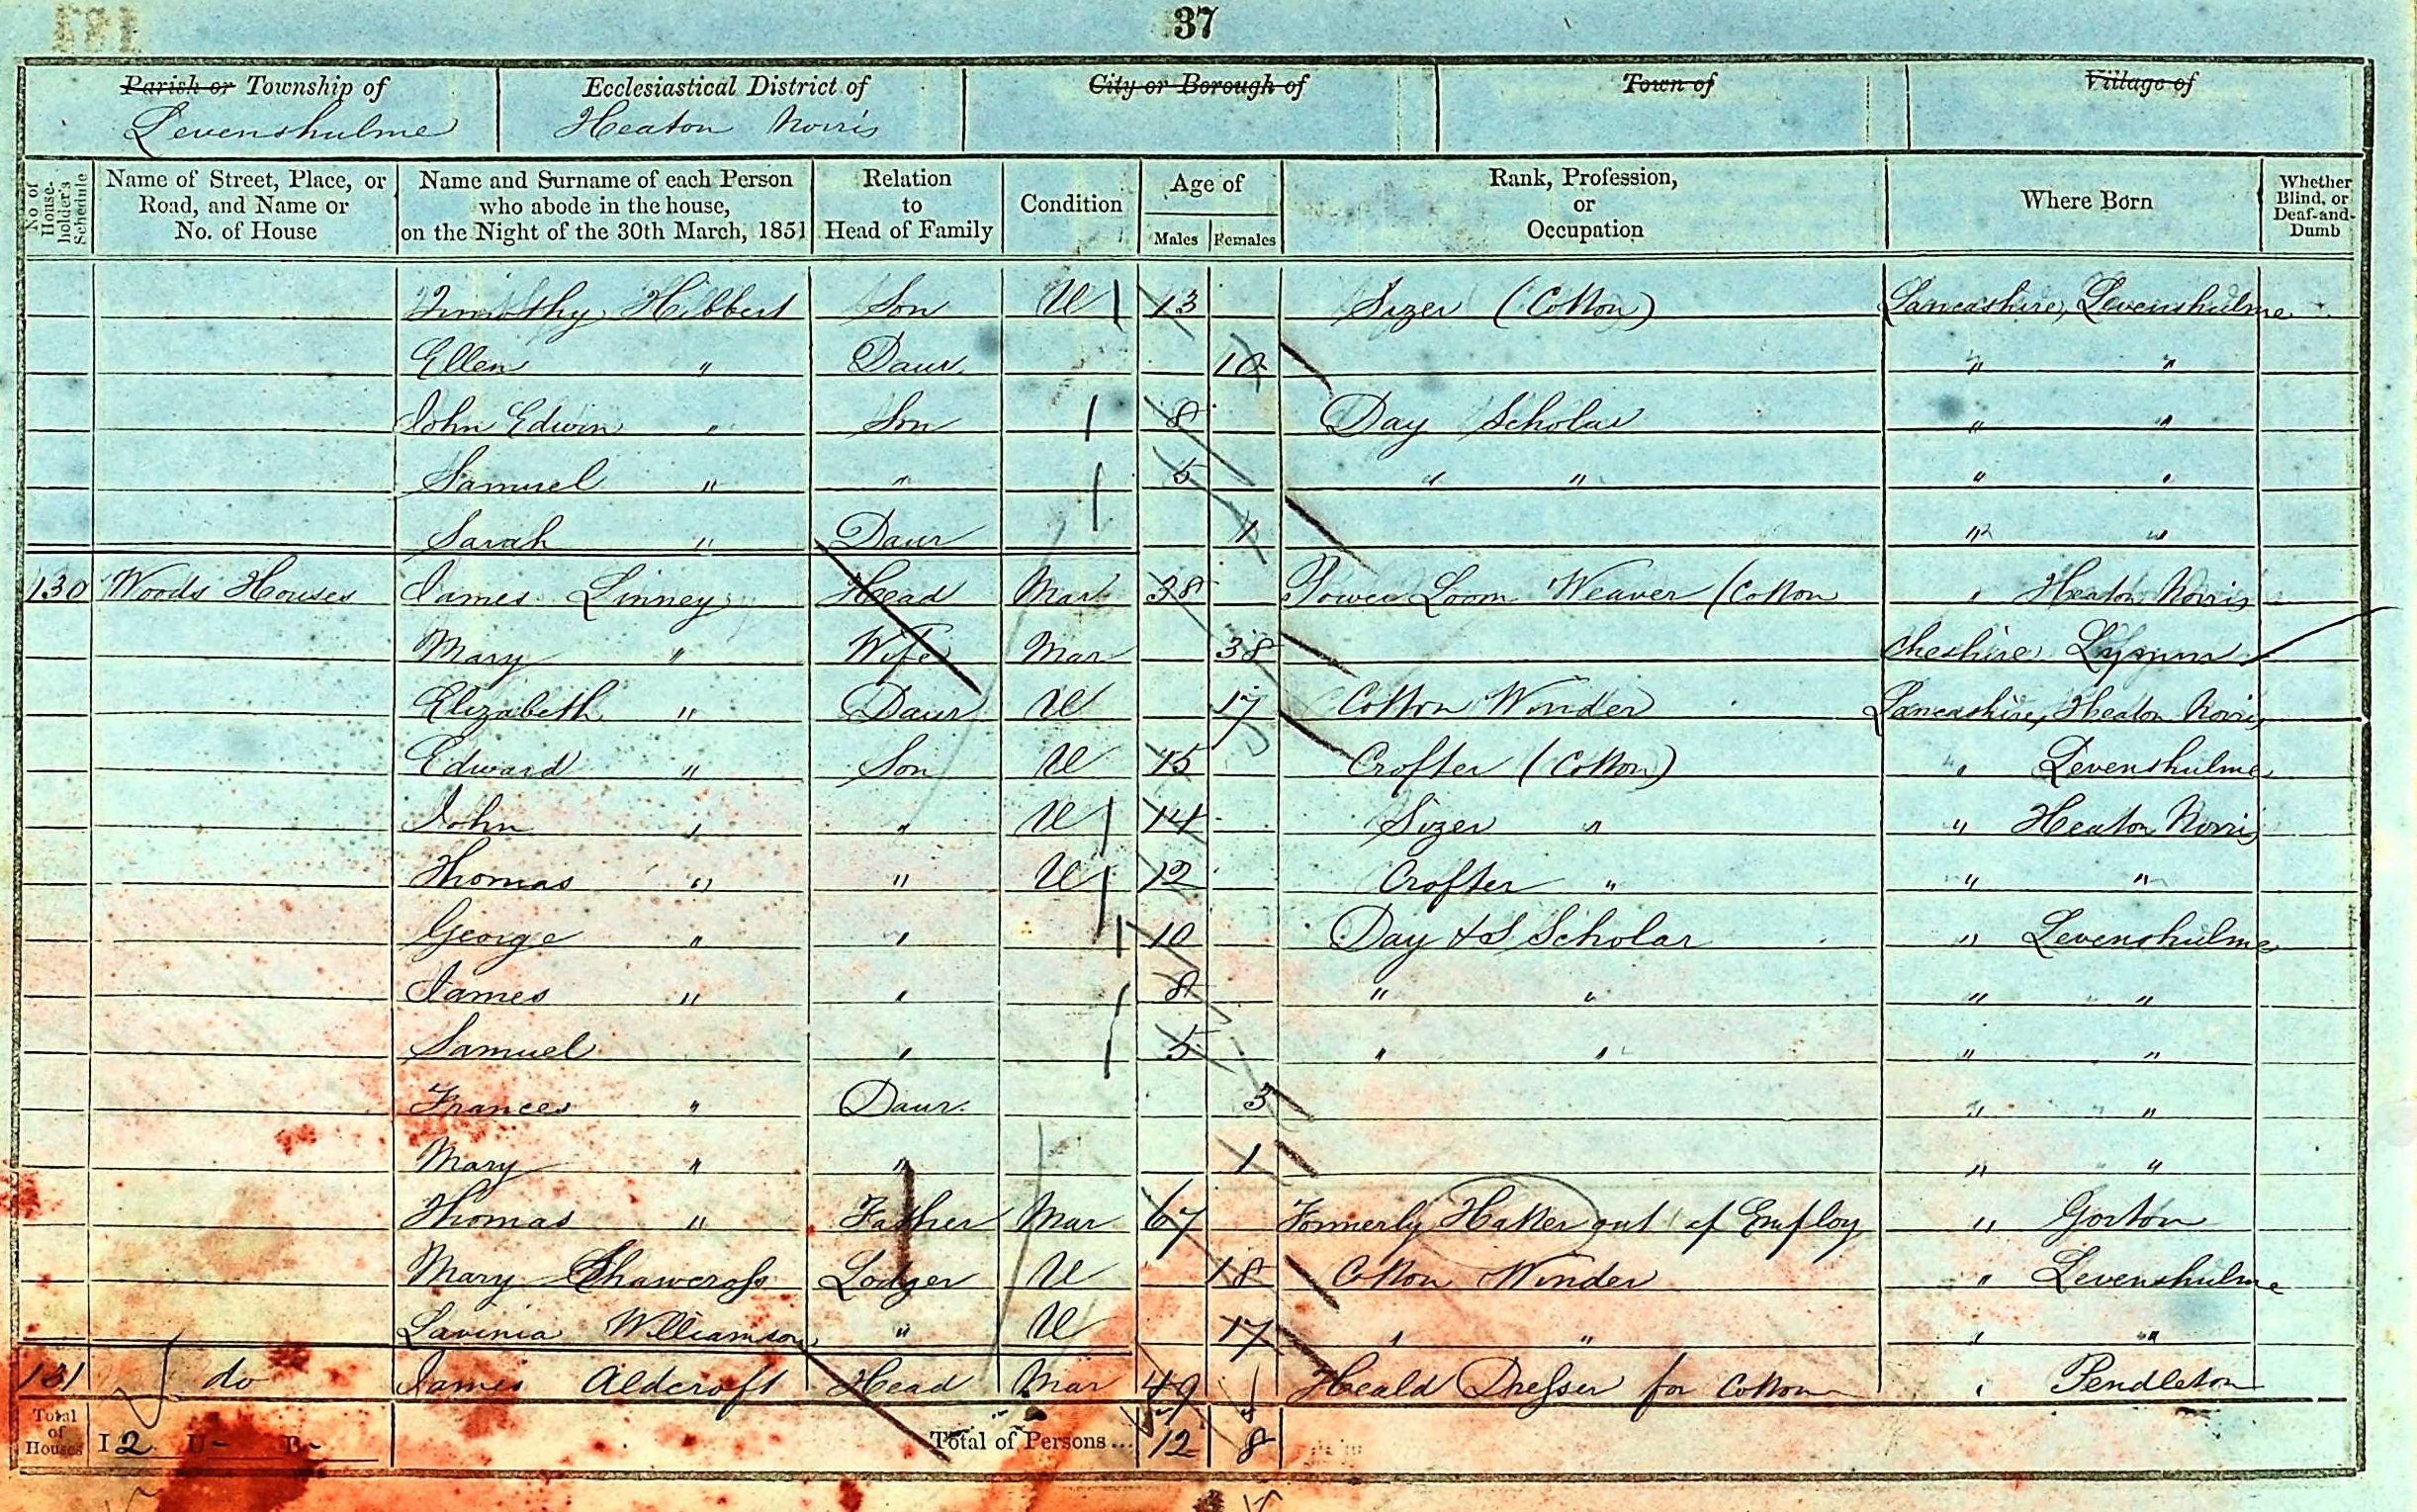 37
Parish or Township of | Ecclesiastical District of | City or Borough of | Town of | Village of
Levenshulme | Heaton Norris
No of House-holder's Schedule | Name of Street, Place, or Road, and Name or No. of House | Name and Surname of each Person who abode in the house, on the Night of the 30th March, 1851 | Relation to Head of Family | Condition | Age of Males Females | Rank, Profession, or Occupation | Where Born | Whether Blind, or Deaf-and-Dumb
Timothy Hibbert | Son | U | 13 | Sizer (Cotton) | Lancashire, Levenshulme
Ellen " | Daur | 10 | " "
John Edwin " | Son | 8 | Day Scholar | " "
Samuel " | " | 5 | " " | " "
Sarah " | Daur | 1 | " "
130 | Woods Houses | James Linney | Head | Mar | 38 | Power Loom Weaver (Cotton | " Heaton Norris
Mary " | Wife | Mar | 38 | Cheshire, Lymm
Elizabeth " | Daur | U | 17 | Cotton Winder | Lancashire, Heaton Norris
Edward " | Son | U | 15 | Crofter (Cotton) | " Levenshulme
John " | " | U | 14 | Sizer " | " Heaton Norris
Thomas " | " | U | 12 | Crofter " | " "
George " | " | 10 | Day & S Scholar | " Levenshulme
James " | " | 8 | " " | " "
Samuel | " | 5 | " " | " "
Frances " | Daur. | 3 | " "
Mary " | " | 1 | " "
Thomas " | Father | Mar | 67 | Formerly Hatter out of Employ | " Gorton
Mary Shawcross | Lodger | U | 18 | Cotton Winder | " Levenshulme
Lavinia Williamson | " | U | 17 | " " | " "
131 | do | James Aldcroft | Head | Mar | 49 | Heald Dresser for Cotton | " Pendleton
Total of Houses | I 2 U - B - | Total of Persons... | 12 | 8